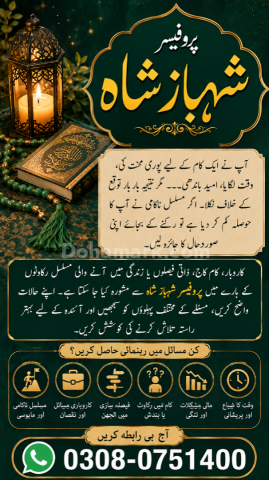 پروفیسر
شہباز شاہ
آپ نے ایک کام کے لیے پوری محنت کی،
وقت لگایا، امید باندھی۔۔۔ مگر نتیجہ بار بار توقع
کے خلاف نکلا۔ اگر مسلسل ناکامی نے آپ کا
حوصلہ کم کر دیا ہے تو رکنے کے بجائے اپنی
صورتحال کا جائزہ لیں۔
کاروبار، کام کاج، ذاتی فیصلوں یا زندگی میں آنے والی مسلسل رکاوٹوں
کے بارے میں پروفیسر شہباز شاہ سے مشورہ کیا جا سکتا ہے۔ اپنے حالات
واضح کریں، مسئلے کے مختلف پہلوؤں کو سمجھیں اور آئندہ کے لیے بہتر
راستہ تلاش کرنے کی کوشش کریں۔
کن مسائل میں رہنمائی حاصل کریں؟
وقت کا ضیاع
اور پریشانی
مالی مشکلات
اور تنگی
کام میں رکاوٹ
یا بندش
فیصلہ سازی
میں الجھن
کاروباری مسائل
اور نقصان
مسلسل ناکامی
اور مایوسی
آج ہی رابطہ کریں
0308-0751400